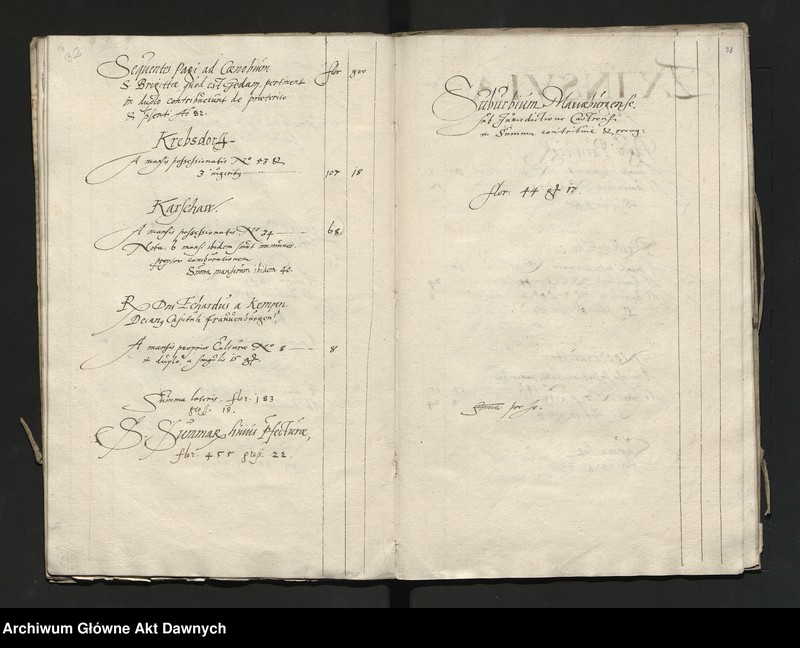 32
flor gro
Sequentes Pagi ad Cœnobium
S Brigittæ quod est Gedani pertinent
in duplo contribuerunt de præterito
& psenti Ao 82.
Krebsdorff
A mansis possessionatis No 53 &
3 iugerib 107 18
Karschaw.
A mansis possessionatis No 34 68
Nota. 6 mansi ibidem sunt immunes
propter comburationem
Summa mansorum ibidem 40.
R Dni Echardus a Kempen
Decanus Capituli frauenburgen
A mansis propriæ Culturæ No 8 8
in duplo a singulis 15 gr.
Summa lateris. flor. 183
gross. 18.
S. Summar huius Præfecturæ,
flor. 455 gross. 22.
28
Suburbium Mariæburgense
sub Jurisdictione Castrensi
in Summa contribuit &
flor: 44 gr 17
Summa per se.
Archiwum Główne Akt Dawnych